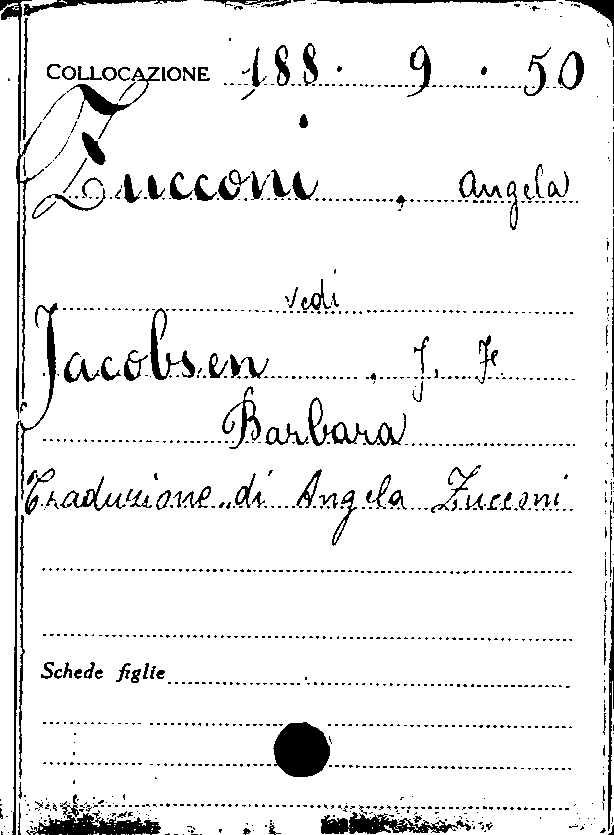 COLLOCAZIONE 188. 9. 50
Zucconi, Angela
vedi
Jacobsen, J. Fe
Barbara
Traduzione di Angela Zucconi
Schede figlie